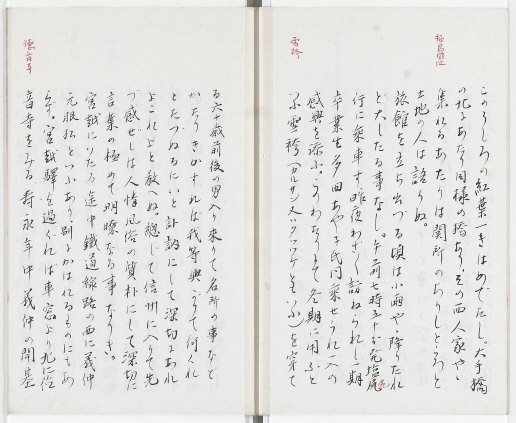 福島関址
このうしろの紅葉一きはめでたし。大手橋
の北にあたり同様の橋あり、その西人家やゝ
集れるあたりは関所のありしところと
土地の人は語りぬ。
旅館を立ち出づる頃は小雨や、降りたれ
ど大したる事なし。午前七時五十分発塩尻
行に乗車す、昨夜わざ〱訪ねられし一期
卒業生多田あや子氏同乗せられ一入の
感興を添ふ。
冬期に用ふと
雪袴
ふ雪袴(カルサン又ハ ともいふ)を穿て
る六十歳前後の男入り来りて名所の事など
かたりきかすれば我等興がりて何くれ
とたづぬるにいと訥にして深切にあれ
よこれよと教へぬ。総じて信州に入りて先
づ感ぜしは人情風俗の質朴にして深切に
言葉の極めて明瞭なる事なりき。
宮越にいたる途中鐵道線路の西に義仲
元服松といふあり別にかはれるものにもあ
らず。宮越驛を過ぐれば車窓より北に徳
徳音寺
音寺をみる寿永年中義仲の開基